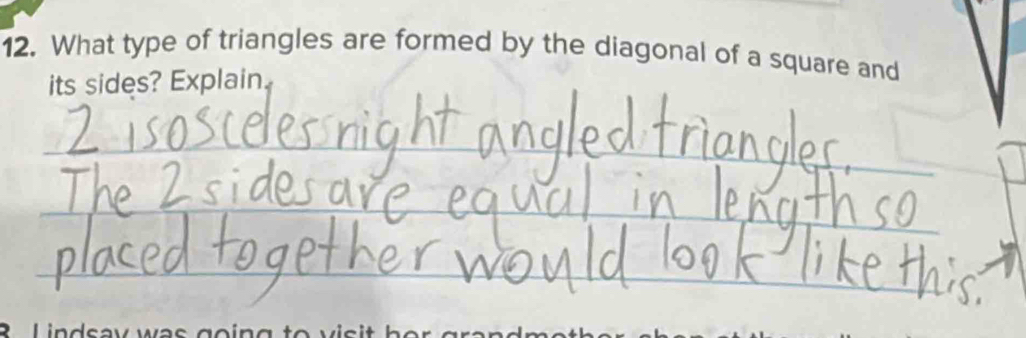 12. What type of triangles are formed by the diagonal of a square and
its sides? Explain.
2 isosceles right angled triangles.
The 2 sides are equal in length so
placed together would look like this.
Lindsay was going to visit her